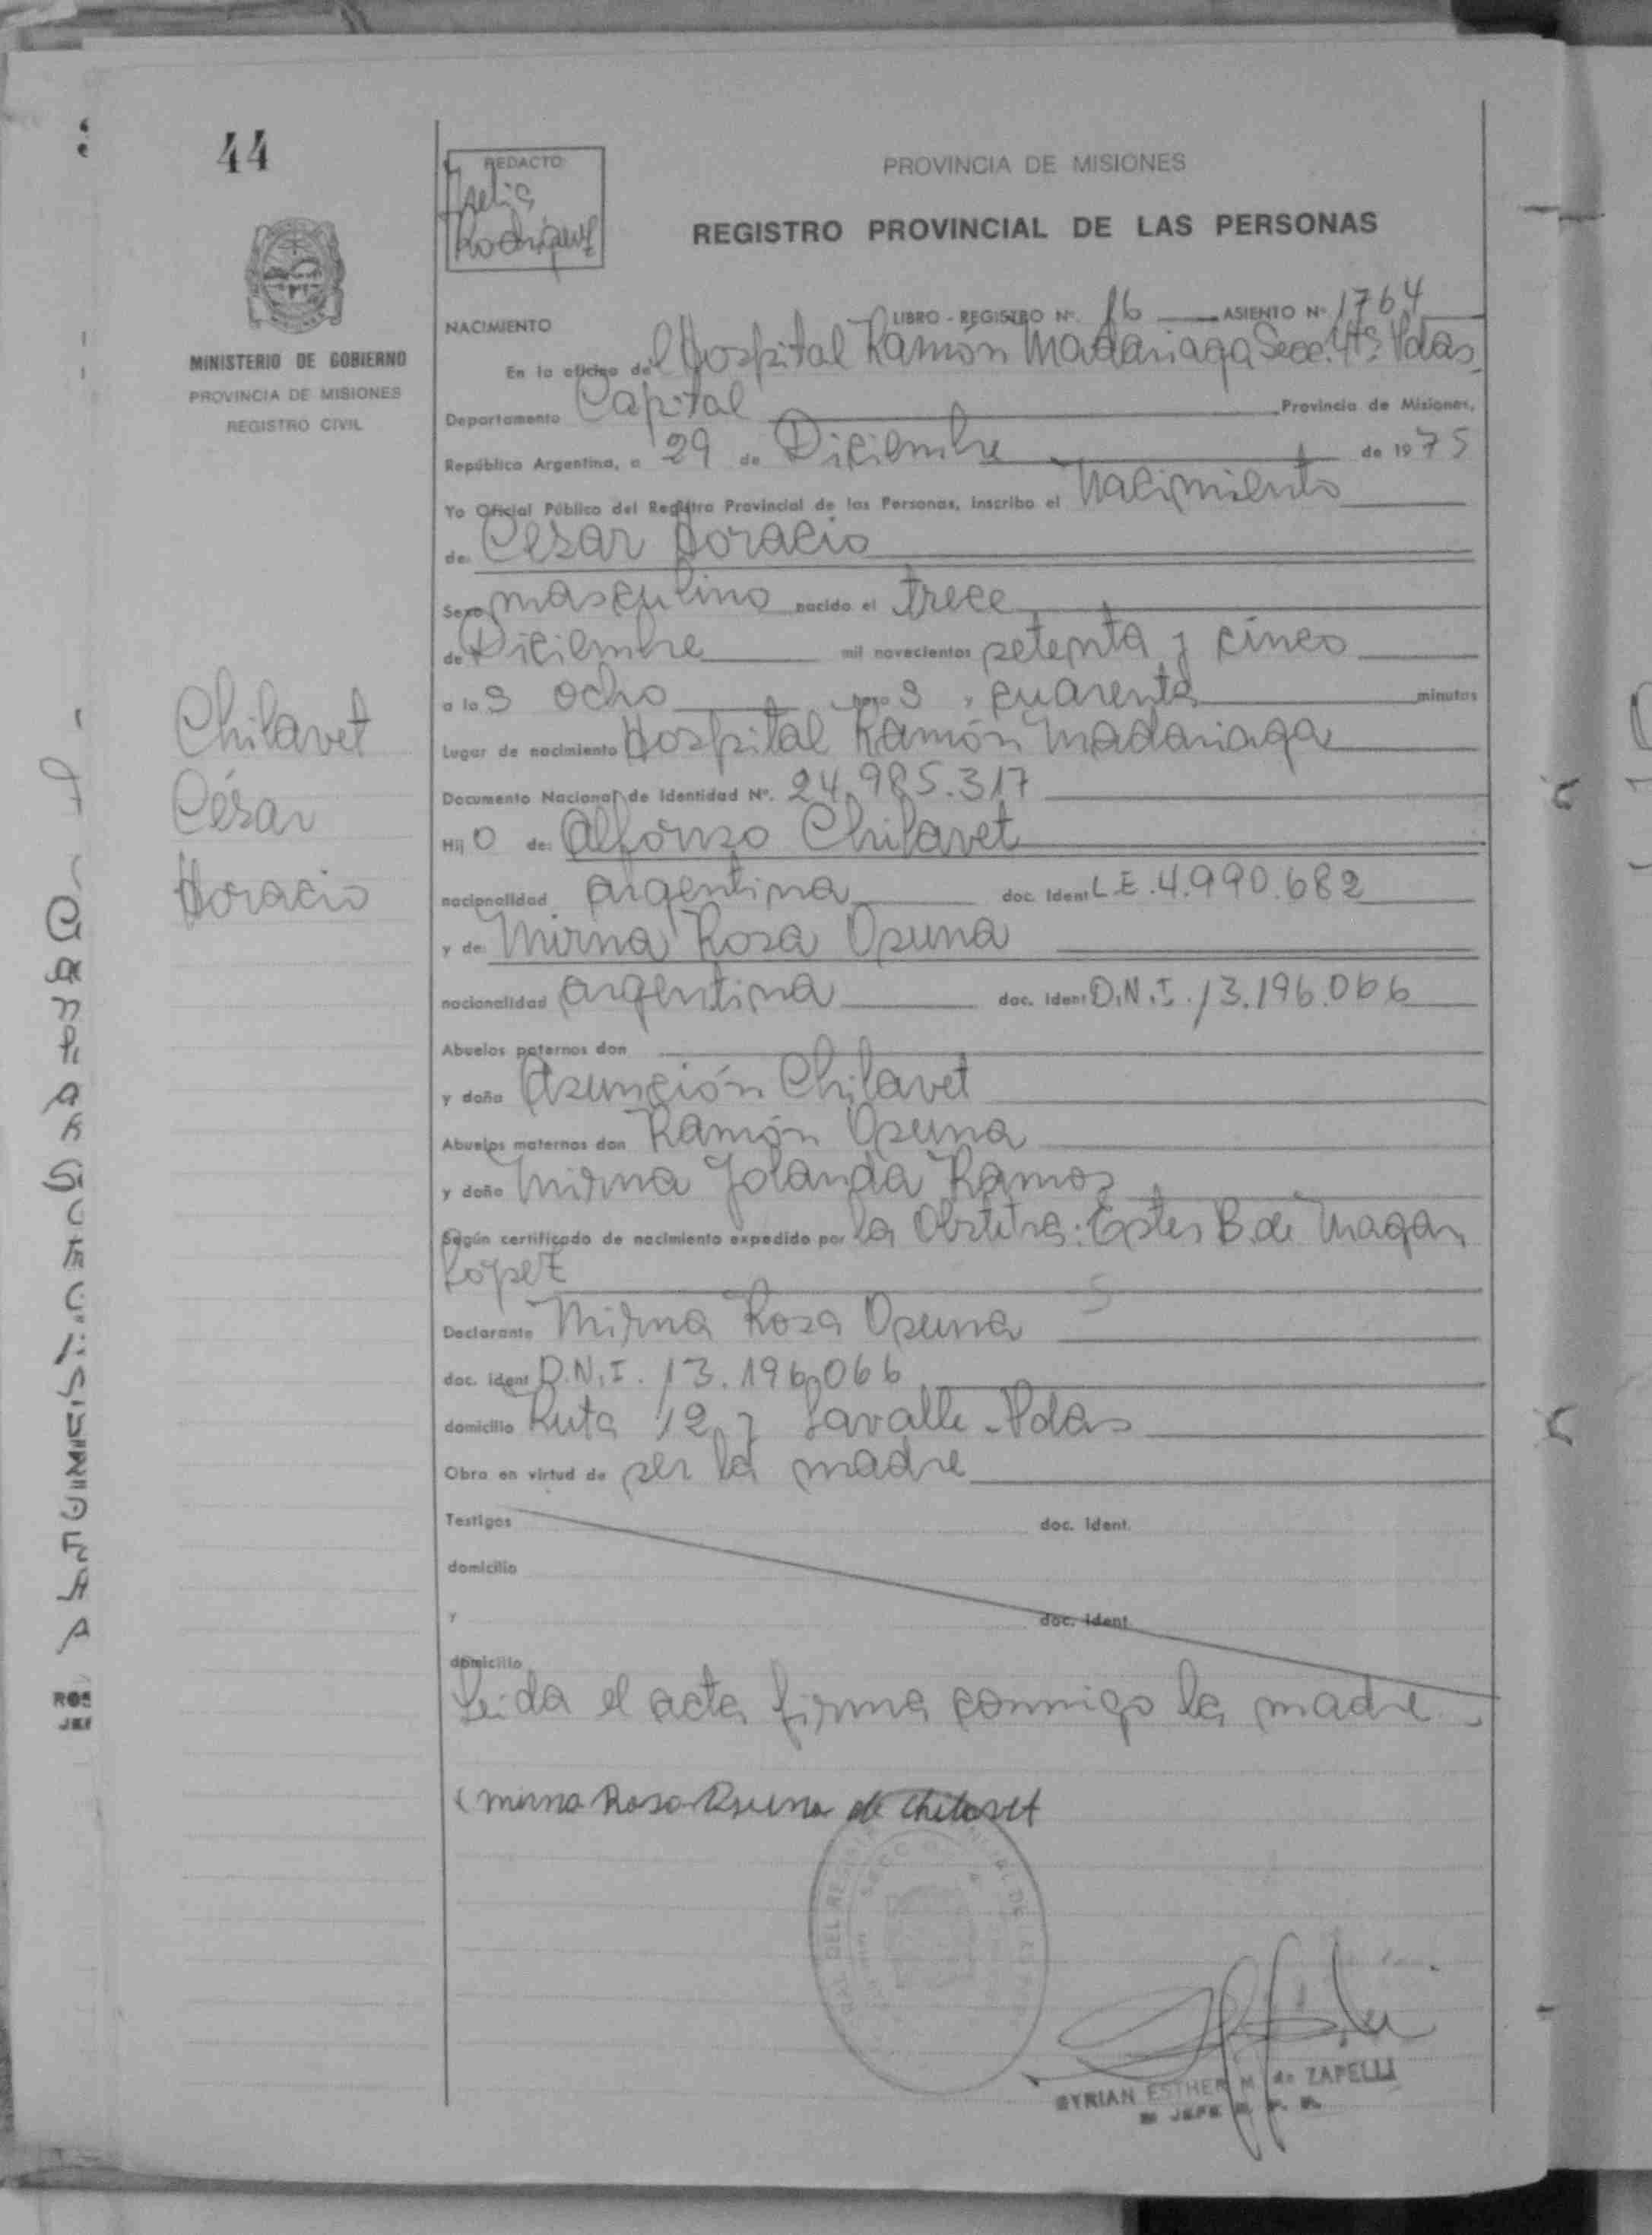 44
REDACTO
Rodriguez
PROVINCIA DE MISIONES
REGISTRO PROVINCIAL DE LAS PERSONAS
MINISTERIO DE GOBIERNO
PROVINCIA DE MISIONES
REGISTRO CIVIL
Chilavet
César
Horacio
NACIMIENTO
LIBRO - REGISTRO Nº. 16 ASIENTO Nº 1764
En la oficina del Hospital Ramón Madariaga Secc. 4ta Pdas.
Departamento Capital Provincia de Misiones,
República Argentina, a 29 de Diciembre de 1975
Yo Oficial Público del Registro Provincial de las Personas, inscribo el nacimiento
de: César Horacio
Sexo masculino nacido el trece
de Diciembre mil novecientos setenta y cinco
a las ocho horas, cuarenta minutos
Lugar de nacimiento Hospital Ramón Madariaga
Documento Nacional de Identidad Nº. 24.985.317
Hijo de: Alfonzo Chilavet
nacionalidad argentina doc. Ident L.E. 4.990.682
y de: Mirna Rosa Osuna
nacionalidad argentina doc. Ident D.N.I. 13.196.066
Abuelos paternos don
y doña Asunción Chilavet
Abuelos maternos don Ramón Osuna
y doña Mirna Jolanda Ramos
Según certificado de nacimiento expedido por la Obstetra: Ester B. de Magan
López
Declarante Mirna Rosa Osuna
doc. ident D.N.I. 13.196.066
domicilio Ruta 12 y Lavalle - Pdas
Obra en virtud de ser la madre
Testigos doc. ident.
domicilio
y doc. ident
domicilio
Leida el acta firma conmigo la madre.
Mirna Rosa Osuna de Chilavet
MYRIAN ESTHER M. de ZAPELLI
JEFE R. P. P.